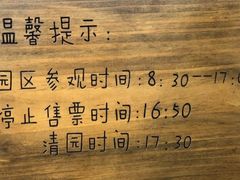 温馨提示:
园区参观时间:8:30--17:0
停止售票时间:16:50
清园时间:17:30